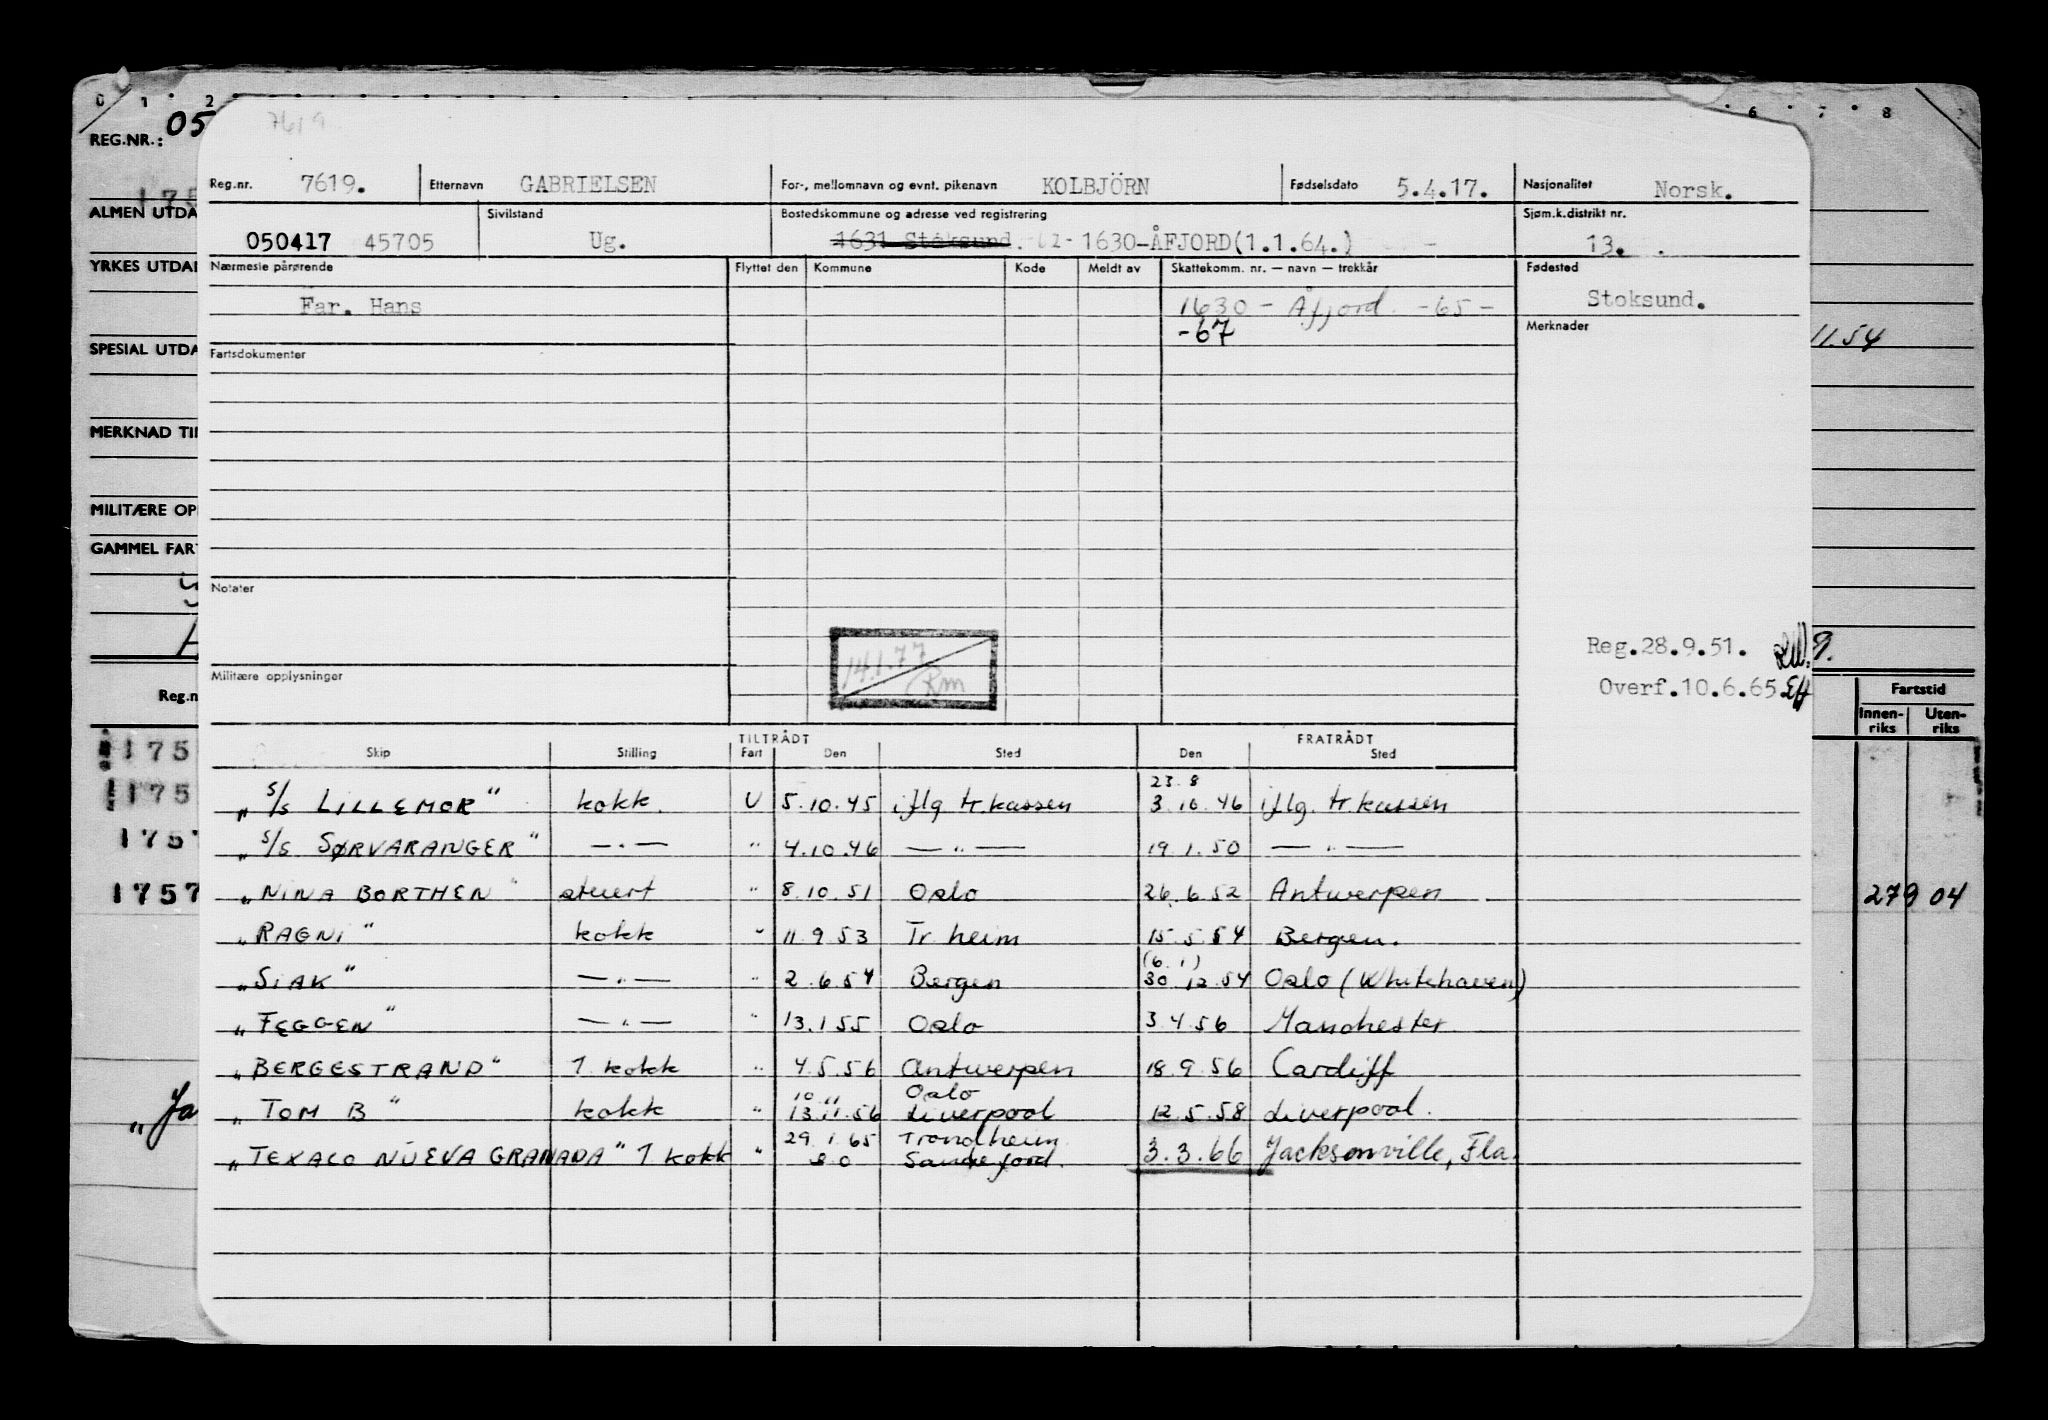 0 1 2 6 7 8
REG.NR.: 05
7619
Reg.nr. 7619. Etternavn GABRIELSEN For-, mellomnavn og evnt. pikenavn KOLBJÖRN Fødselsdato 5.4.17. Nasjonalitet Norsk.
175
ALMEN UTDA
Sivilstand Bostedskommune og adresse ved registrering Sjøm.k.distrikt nr.
050417 45705 Ug. 1631 Stoksund. 1630-ÅFJORD(1.1.64.) 13.
YRKES UTDA
Nærmeste pårørende Flyttet den Kommune Kode Meldt av Skattekomm. nr. — navn — trekkår Fødested
Far. Hans 1630 - Åfjord. -65- Stoksund.
-67 Merknader
11.54
SPESIAL UTDA
Fartsdokumenter
MERKNAD TIL
MILITÆRE OP
GAMMEL FAR
Notater
14.1.77
Rm
Reg.28.9.51.
Militære opplysninger
Overf.10.6.65
Reg.n Fartstid
Innen-riks Uten-riks
TILTRÅDT FRATRÅDT
Skip Stilling Fart Den Sted Den Sted
175
23.8
„ S/S LILLEMOR" kokk. U 5.10.45 iflg tr.kassen 3.10.46 iflg. tr.kassen
175
„ S/S SØRVARANGER" —„— " 4.10.46 —„— 19.1.50 —„—
1757
„NINA BORTHEN" stuert " 8.10.51 Oslo 26.6.52 Antwerpen
1757 279 04
„RAGNI" kokk " 11.9.53 Tr.heim 15.5.54 Bergen.
(6.1)
„SIAK" —„— " 2.6.54 Bergen 30.12.54 Oslo (Whitehaven)
„FEGGEN" —„— " 13.1.55 Oslo 3.4.56 Manchester
„BERGESTRAND" 1 kokk " 4.5.56 Antwerpen 18.9.56 Cardiff
10 " Oslo
„TOM B" kokk " 13.11.56 Liverpool 12.5.58 Liverpool.
„Ja
29.1.65 Trondheim
„TEXACO NUEVA GRANADA" 1 kokk " Sandefjord. 3.3.66 Jacksonville, Fla.